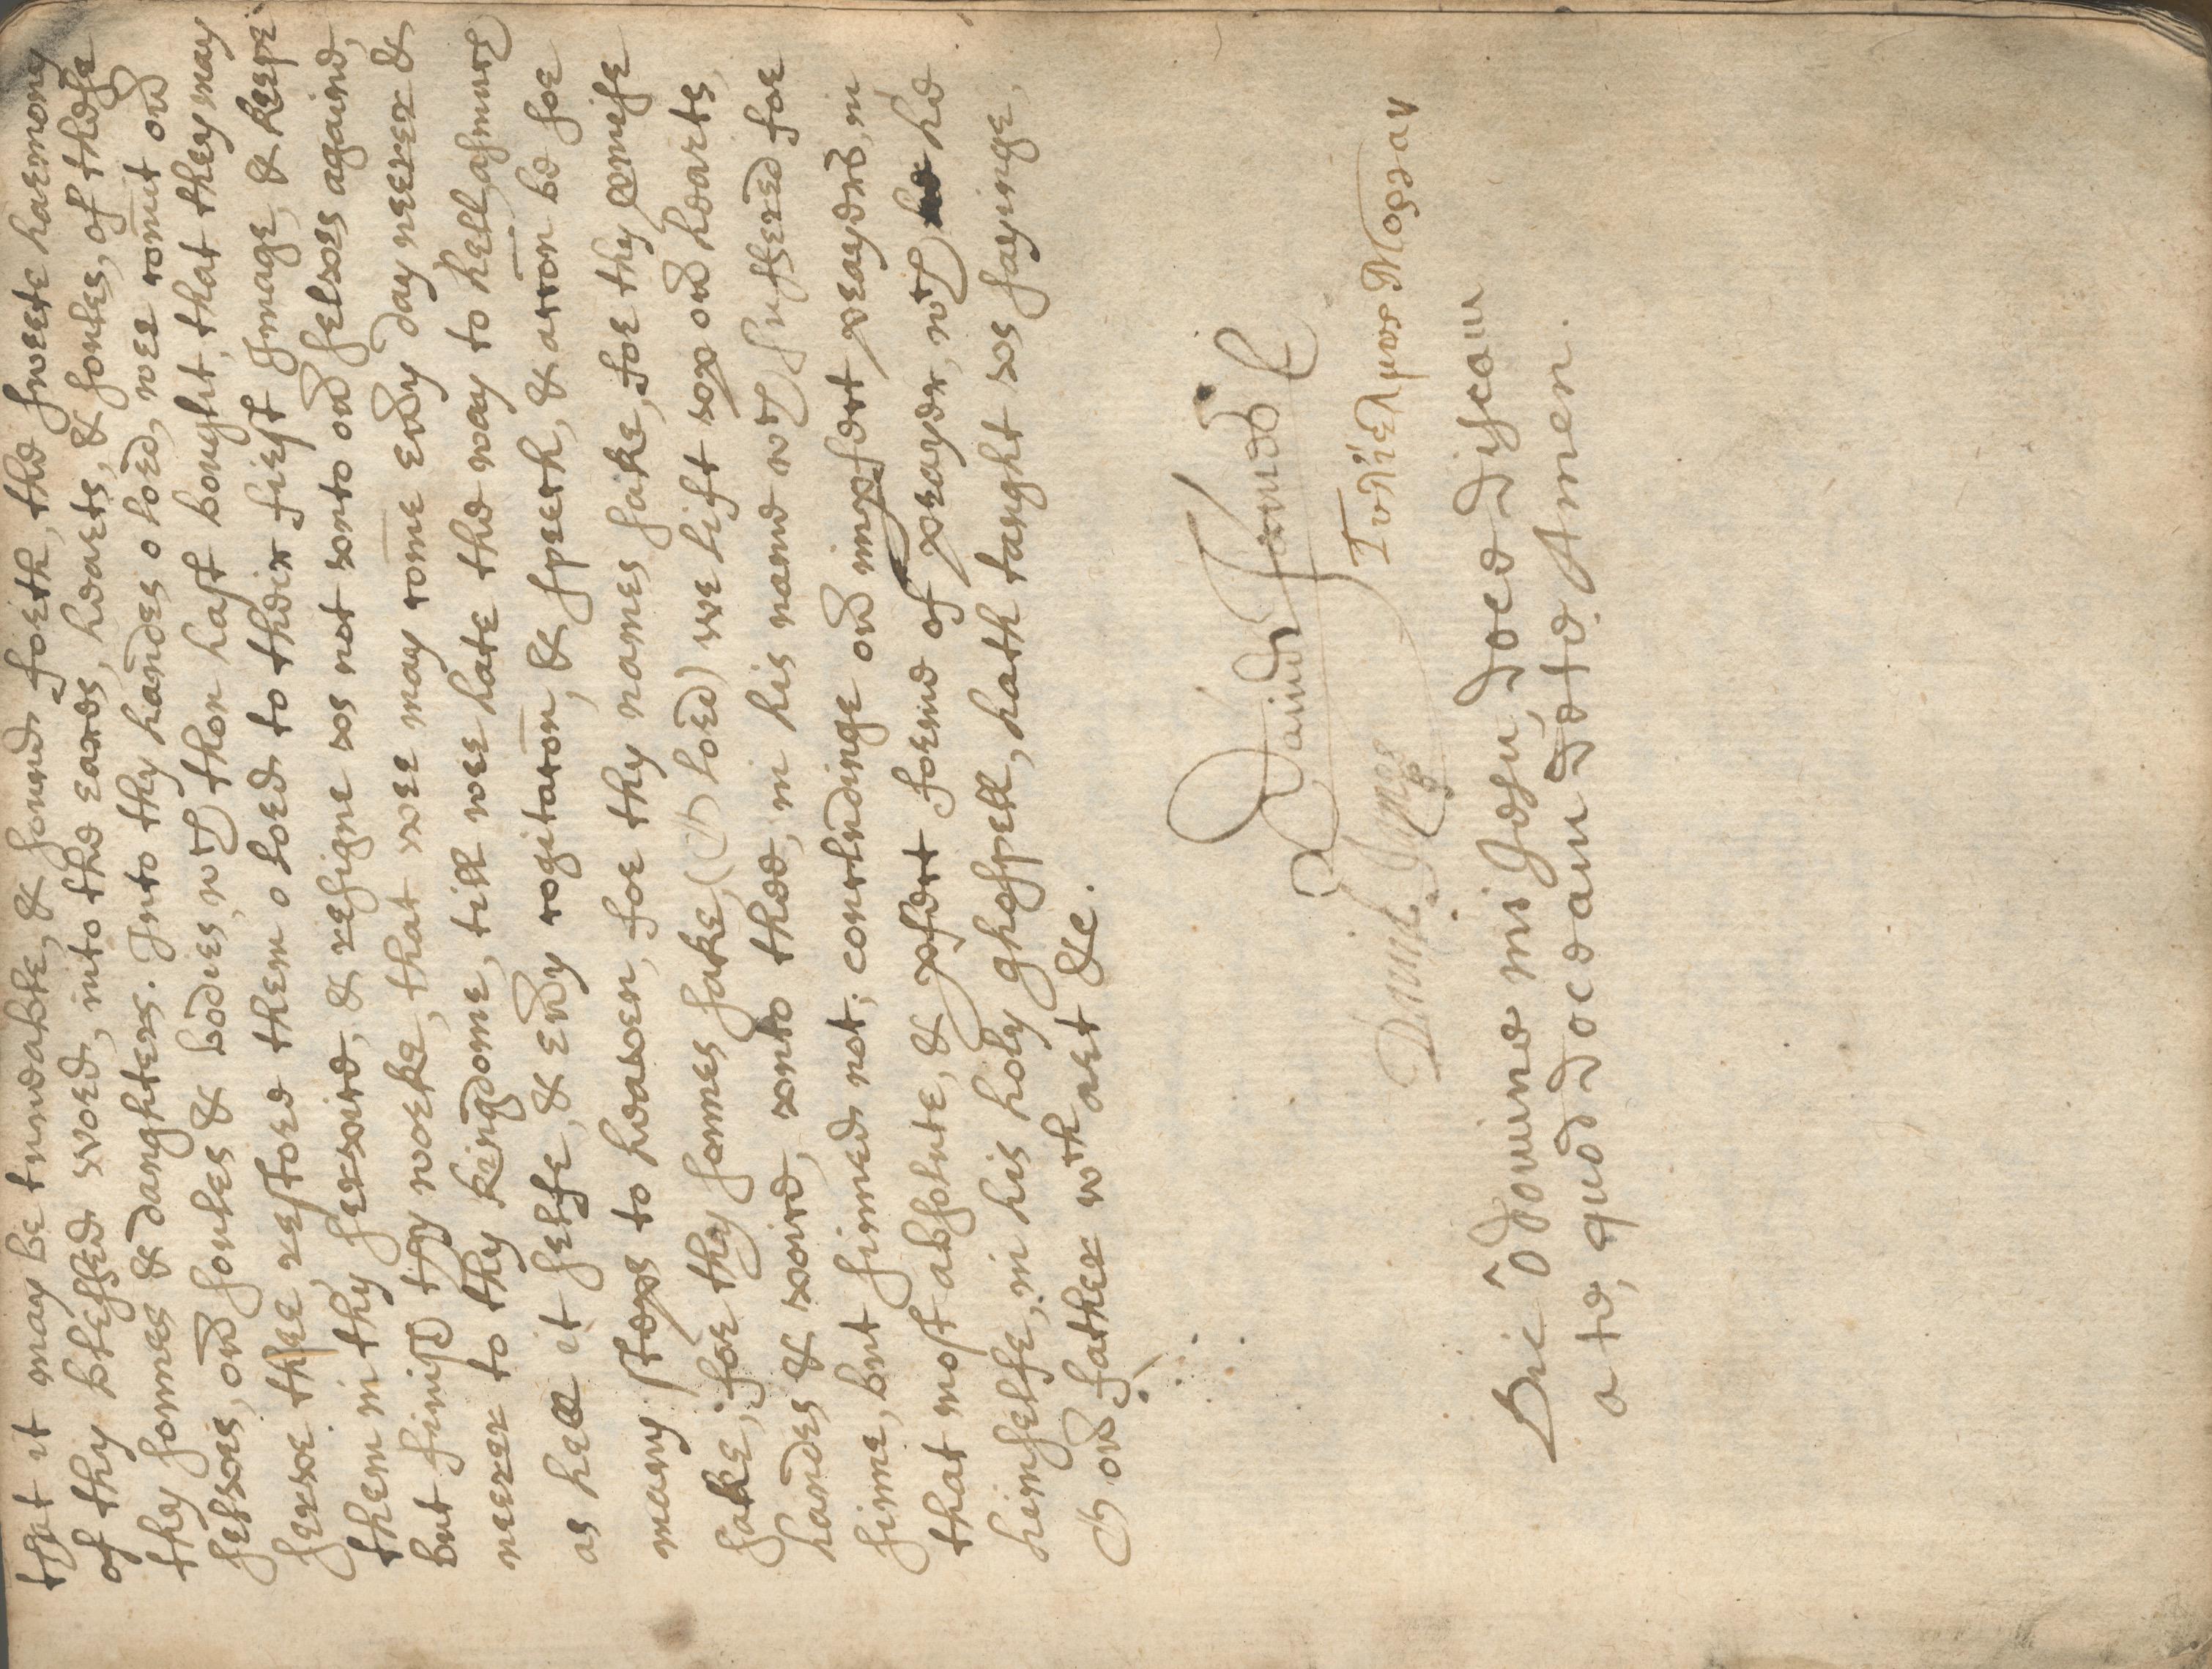 that it may be tundable, & sound forth, the sweete harmony
of thy blessed word, into the eares, hearts, & soules, of these
thy sonnes & daughters. Into thy handes o lord, wee com̄it our
selves, our soules & bodies, wch thou hast bought, that they may
serve thee, restore them o lord to their first Image, & keepe
them in thy service, & resigne us not unto our selves againe,
but finish thy worke, that wee may come evry day neerer &
neerer to thy kingdome, till wee hate the way to hell, asmuch
as hell it selfe, & evry cogitacōn, & speech, & accōn be soe
many steps to heaven, for thy names sake, for thy p̱mise
sake, for thy sonnes sake, (O lord) we lift up our hearts
handes & voice, unto thee, in his name wch suffered for
sinne, but sinned not; concludinge our imp̱fect prayers, in
that most absolute, & p̱fect forme of prayer, wch he
himselfe, in his holy ghospell, hath taught us sayinge,
O our father wth art &c.
David
Γυλιέλμος Μοργαν
Dic ô Domine mi Jesu, doce discam
a te, quod doceam de te. Amen.